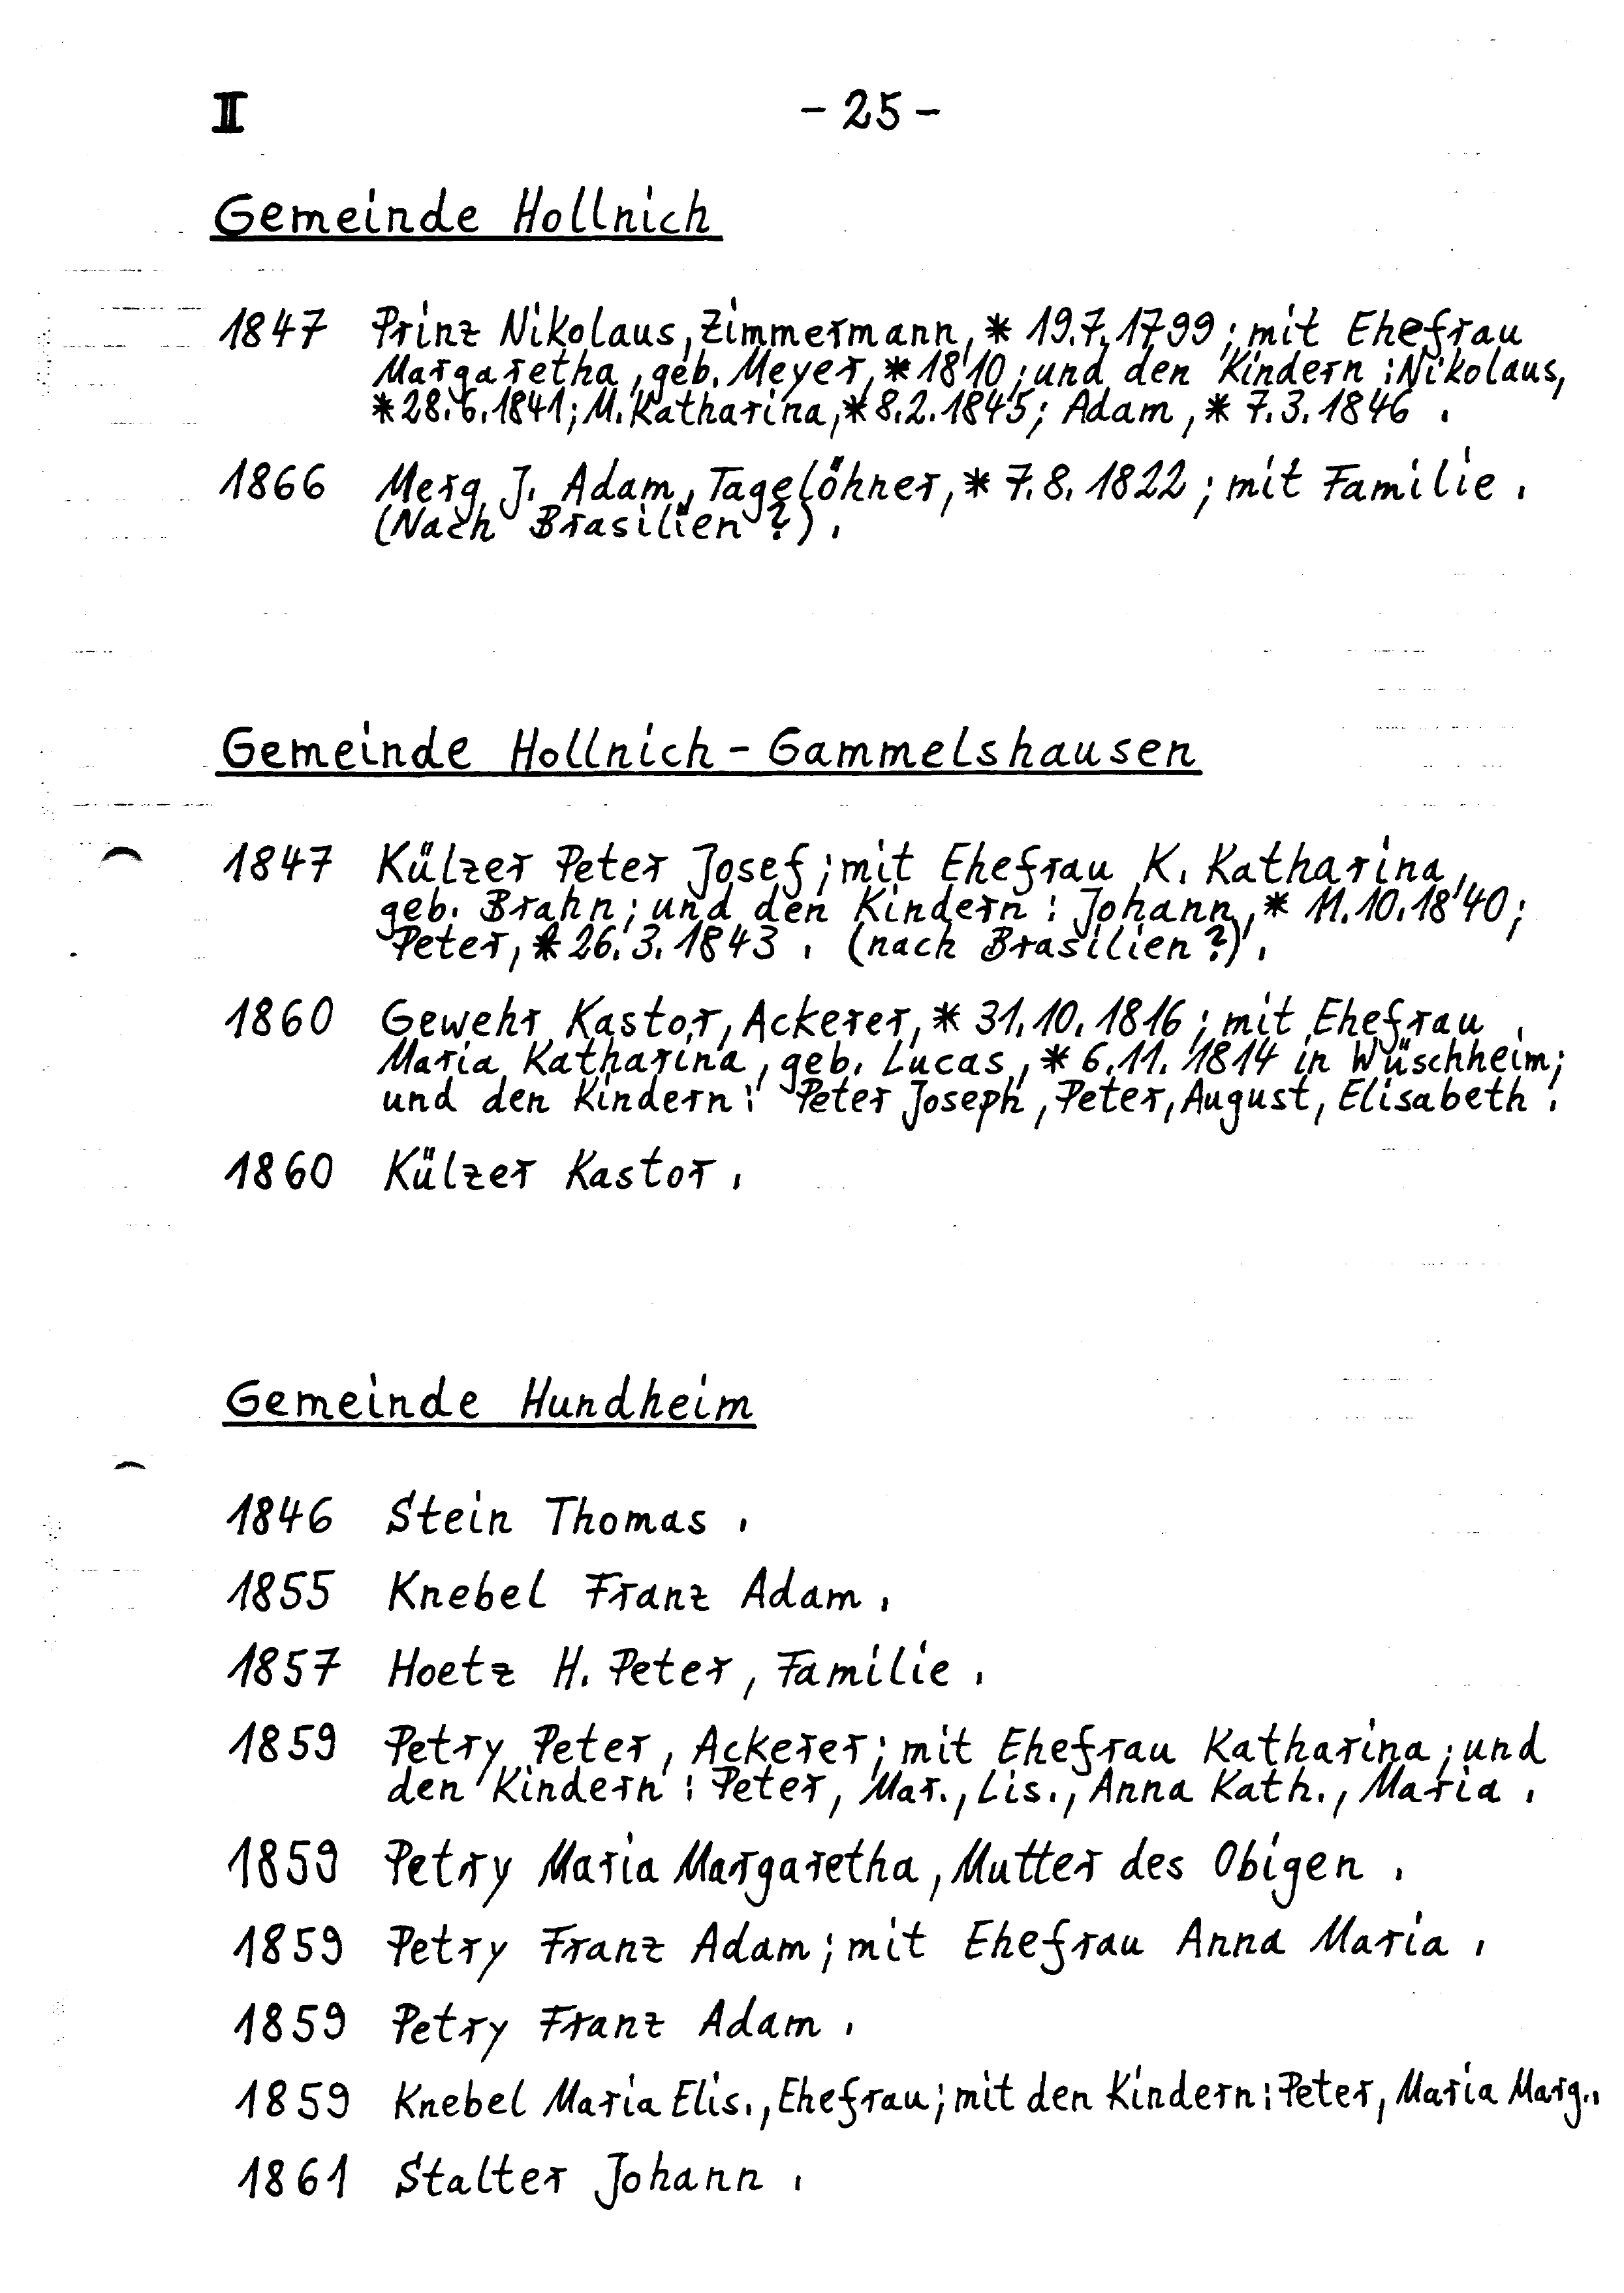 II - 25 -
Gemeinde Hollnich
1847 Prinz Nikolaus, Zimmermann, * 19.7.1799; mit Ehefrau
Margaretha, geb. Meyer, * 1810; und den Kindern: Nikolaus,
* 28.6.1841; M. Katharina, * 8.2.1845; Adam, * 7.3.1846.
1866 Merg J. Adam, Tagelöhner, * 7.8.1822; mit Familie.
(Nach Brasilien?).
Gemeinde Hollnich - Gammelshausen
1847 Külzer Peter Josef; mit Ehefrau K. Katharina,
geb. Brahn; und den Kindern: Johann, * 11.10.1840;
Peter, * 26.3.1843. (nach Brasilien?).
1860 Gewehr Kastor, Ackerer, * 31.10.1816; mit Ehefrau
Maria Katharina, geb. Lucas, * 6.11.1814 in Wüschheim;
und den Kindern: Peter Joseph, Peter, August, Elisabeth.
1860 Külzer Kastor.
Gemeinde Hundheim
1846 Stein Thomas.
1855 Knebel Franz Adam.
1857 Hoetz H. Peter, Familie.
1859 Petry Peter, Ackerer; mit Ehefrau Katharina; und
den Kindern: Peter, Mar., Lis., Anna Kath., Maria.
1859 Petry Maria Margaretha, Mutter des Obigen.
1859 Petry Franz Adam; mit Ehefrau Anna Maria.
1859 Petry Franz Adam.
1859 Knebel Maria Elis., Ehefrau; mit den Kindern: Peter, Maria Marg..
1861 Stalter Johann.